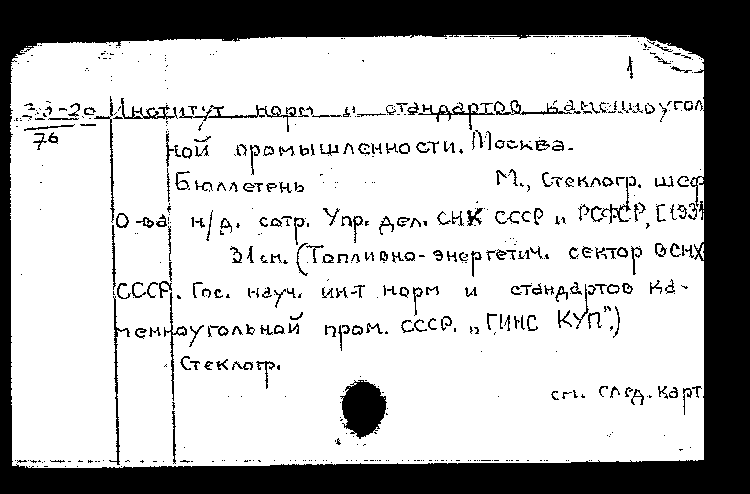 1
Институт норм и стандартов каменноугол
76
ной промышленности. Москва.
Бюллетень М., Стеклогр. шеф
о-ва н/д. сотр. Упр. дел. СНК СССР и РСФСР, [193
31 см. (Топливно-энергетич. сектор ВСНХ
СССР. Гос. науч. ин-т норм и стандартов ка-
менноугольной пром. СССР. „ГИНС КУП".)
Стеклогр.
см. след. карт.